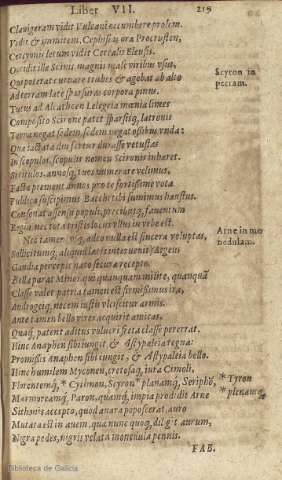 Liber VII. 219
Clauigeram vidit Vulcani occumbere prolem.
Vidit & immitem Cephisias ora Procrusten,
Cercyonis letum vidit Cerealis Eleusis.
Occidit ille Scinis magnis male viribus vsus,
Qui poterat curuare trabes & agebat ab alto
Ad terram late sparsuras corpora pinus.
Tutus ad Alcathoen Lelegeia mœnia limes
Composito Scirone patet sparsisq; latronis
Terra negat sedem, sedem negat ossibus vnda:
Quæ iactata diu fertur durasse vetustas
In scopulos, scopulis nomen Scironis inhæret.
Si titulos, annosq; tuos numerare velimus,
Facta prement annos pro te fortissime vota
Publica suscipimus Bacchi tibi sumimus haustus.
Consonat assensu populi, precibusq; fauentum
Regia, nec tota tristis locus vllus in vrbe est.
Nec tamen vsq; adeo nulla est sincera voluptas,
Sollicitumq; aliquid lætis interuenit Aegeus
Gaudia percepit nato secura recepto.
Bella parat Minos qui quanquam milite, quanquã
Classe valet patria tamen est firmissimus ira,
Androgeiq; necem iustis vlciscitur armis.
Ante tamen bello vires acquirit amicas.
Quaq; patent aditus volucri freta classe pererrat.
Hinc Anaphen sibi iungit & Astypaleia regna:
Promissis Anaphen sibi iungit, & Astypaleia bello.
Hinc humilem Myconen, cretosaq; iura Cimoli,
Florentemq; * Cythnon, Scyron * planamq; Seriphõ,
Marmoreamq; Paron, quamq; impia prodidit Arne
Sithonis accepto, quod auara poposcerat, auro
Mutata est in auem, quæ nunc quoq; diligit aurum,
Nigra pedes, nigris velata monedula pennis.
FAB.
Scyron in
petram.
Arne in mo
nedulam.
* Tyron
* plenamq;
Biblioteca de Galicia